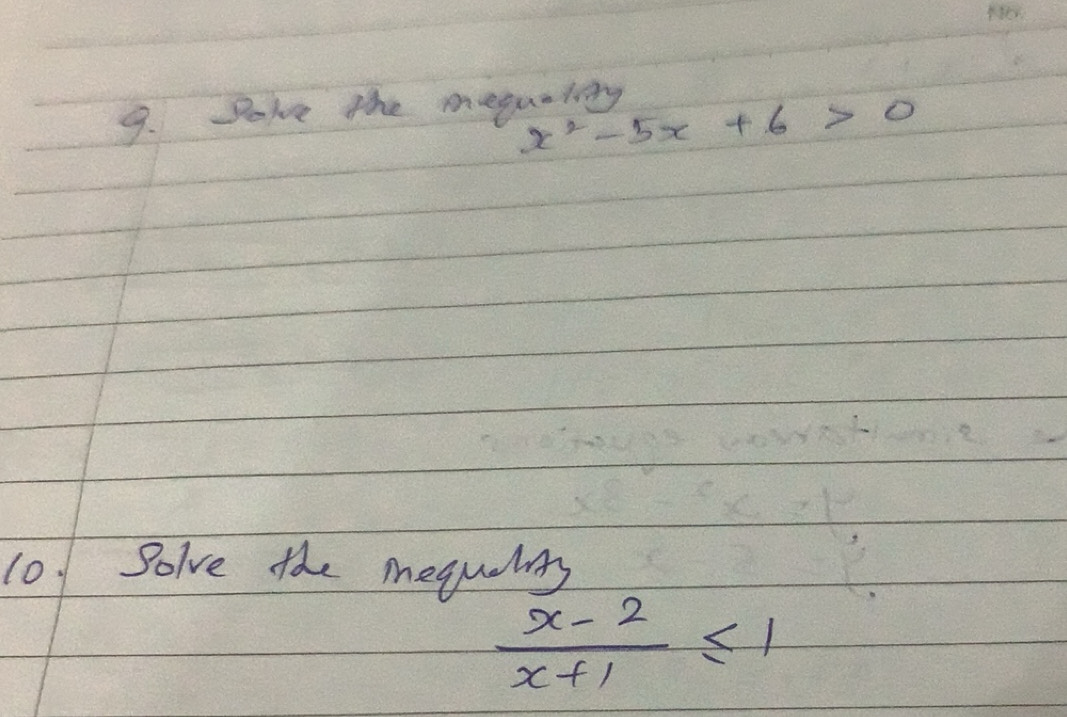 No.
9. Solve the inequality
x² - 5x + 6 > 0
10. Solve the inequality
x - 2
x + 1 ≤ 1